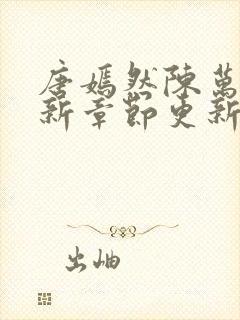 唐嫣然陈万
新章节更新
出岫